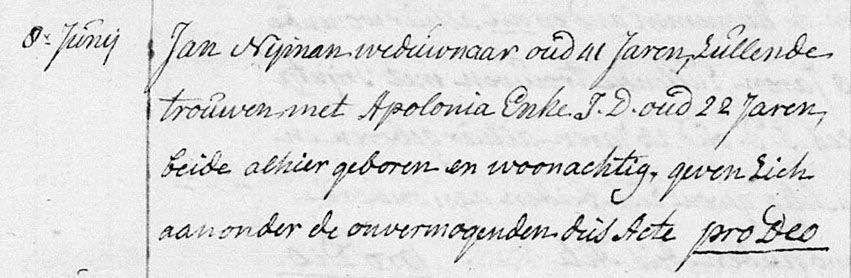 8. Junij
Jan Nijman weduwnaar oud 41 Jaren, Zullende
trouwen met Apolonia Enke J. D. oud 22 Jaren,
beide alhier geboren en woonachtig, geven Zich
aan onder de onvermogenden dus Acte pro Deo